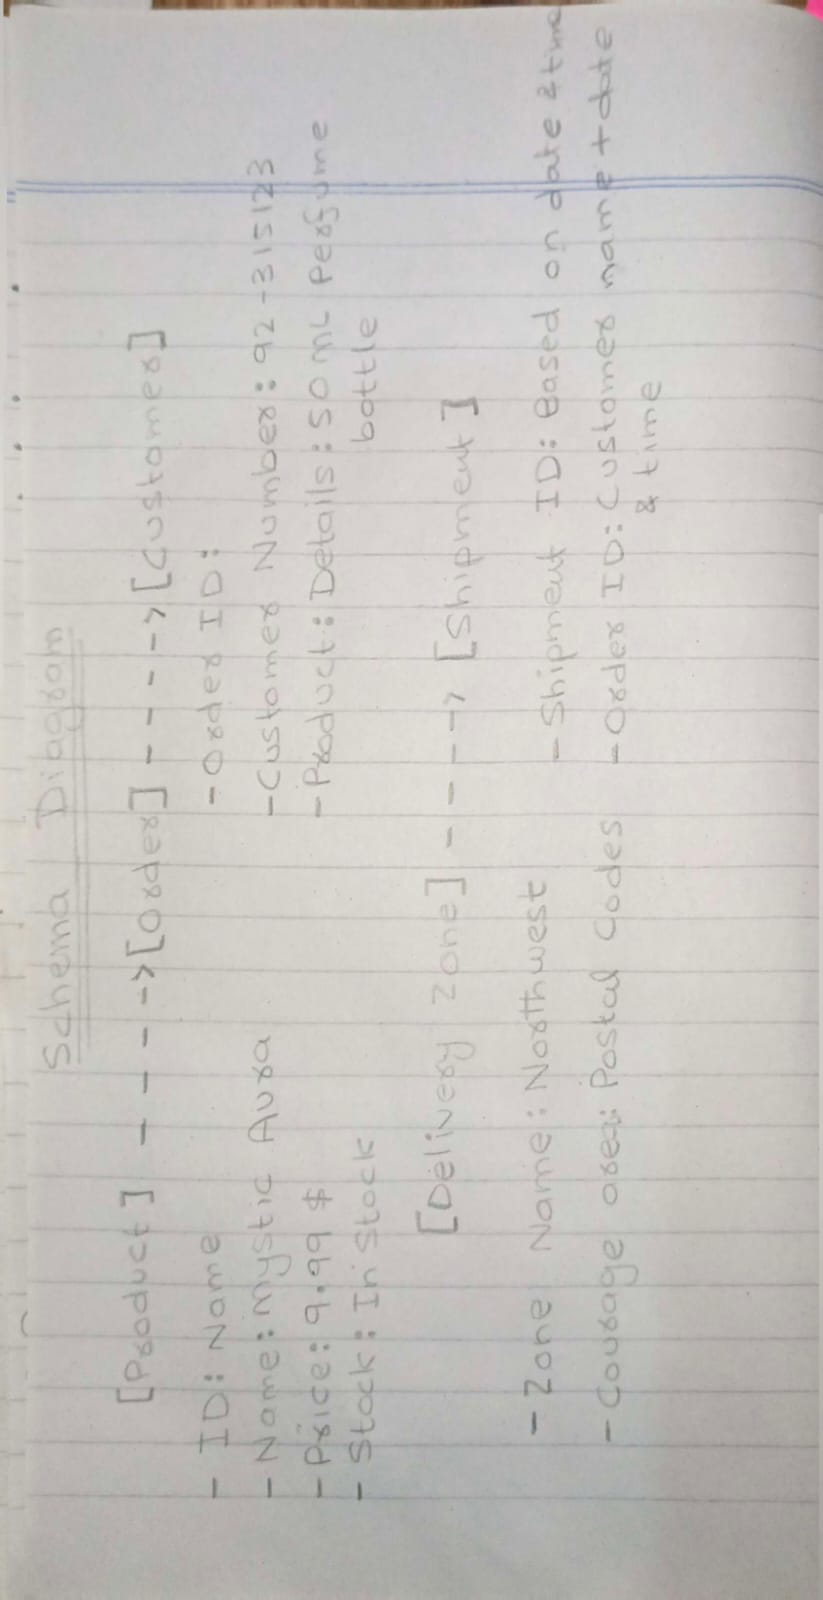 Schema Diagram
[Product] - - - -> [Order] - - - -> [Customer]
- ID: Name
- Name: Mystic Aura
- Price: 9.99 $
- Stock: In Stock
- Order ID:
- Customer Number: 92-315123
- Product: Details: 50 mL Perfume
bottle
[Delivery Zone] - - - -> [Shipment]
- Zone Name: Northwest
- Courage area: Postal Codes
- Shipment ID: Based on date & time
- Order ID: Customer name + date
& time